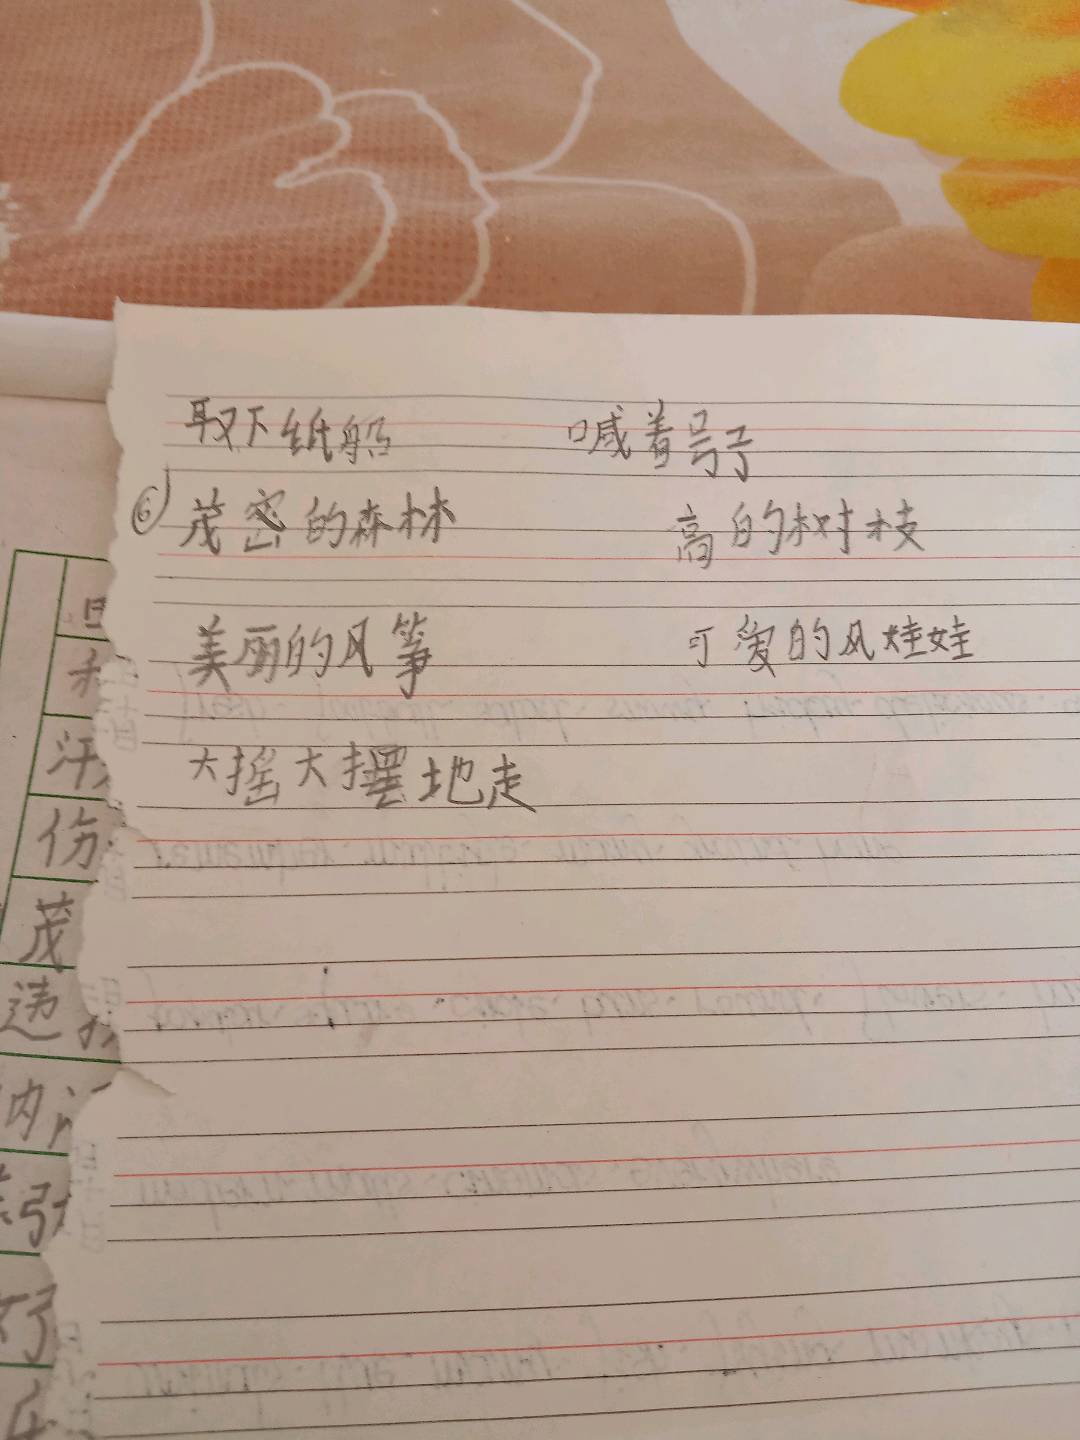 取下纸船 喊着号子
⑥茂密的森林 高的树枝
美丽的风筝 可爱的风娃娃
大摇大摆地走
汗
伤
茂
违
内